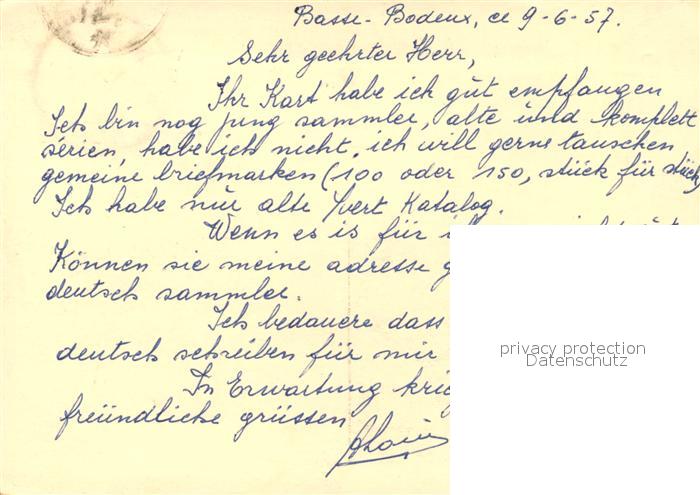 Basse-Bodeux, ce 9-6-57.
Sehr geehrter Herr,
Ihr Kart habe ich gut empfangen
Ich bin nog jung sammler, alte und komplett
serien habe ich nicht, ich will gerne tauschen
gemeine briefmarken (100 oder 150, stück für stück)
Ich habe nur alte Yvert Katalog.
Wenn es is für
Können sie meine adresse
deutsch sammler.
Ich bedauere dass
deutsch schreiben für mir
In Erwartung
freündliche grüssen
privacy protection
Datenschutz